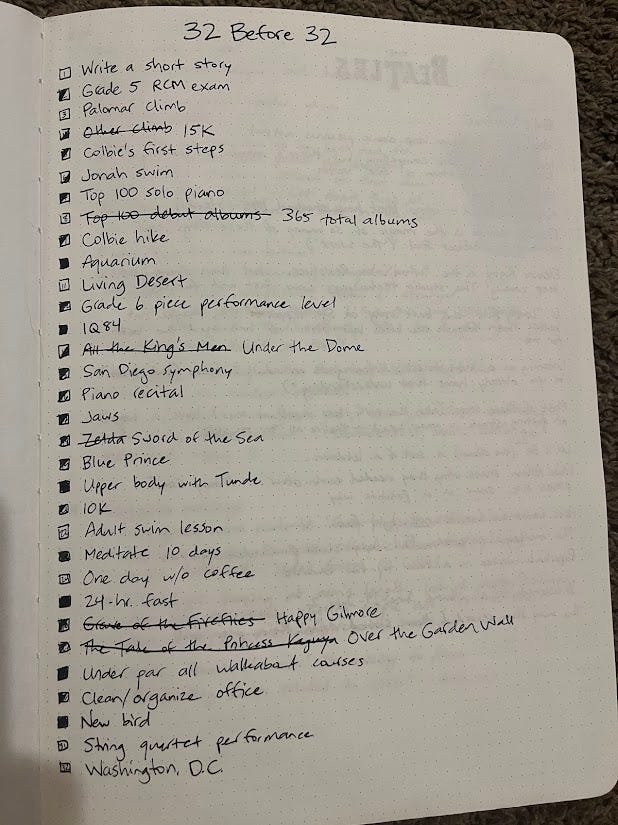 32 Before 32
1 Write a short story
Grade 5 RCM exam
3 Palomar climb
Other climb 15K
Colbie's first steps
Jonah swim
Top 100 solo piano
8 Top 100 debut albums 365 total albums
Colbie hike
Aquarium
11 Living Desert
Grade 6 piece performance level
1Q84
All the King's Men Under the Dome
San Diego symphony
Piano recital
Jaws
Zelda Sword of the Sea
Blue Prince
Upper body with Tunde
10K
22 Adult swim lesson
Meditate 10 days
24 One day w/o coffee
24-hr. fast
Grave of the Fireflies Happy Gilmore
The Tale of the Princess Kaguya Over the Garden Wall
Under par all walkabout courses
Clean/organize office
New bird
31 String quartet performance
32 Washington, D.C.